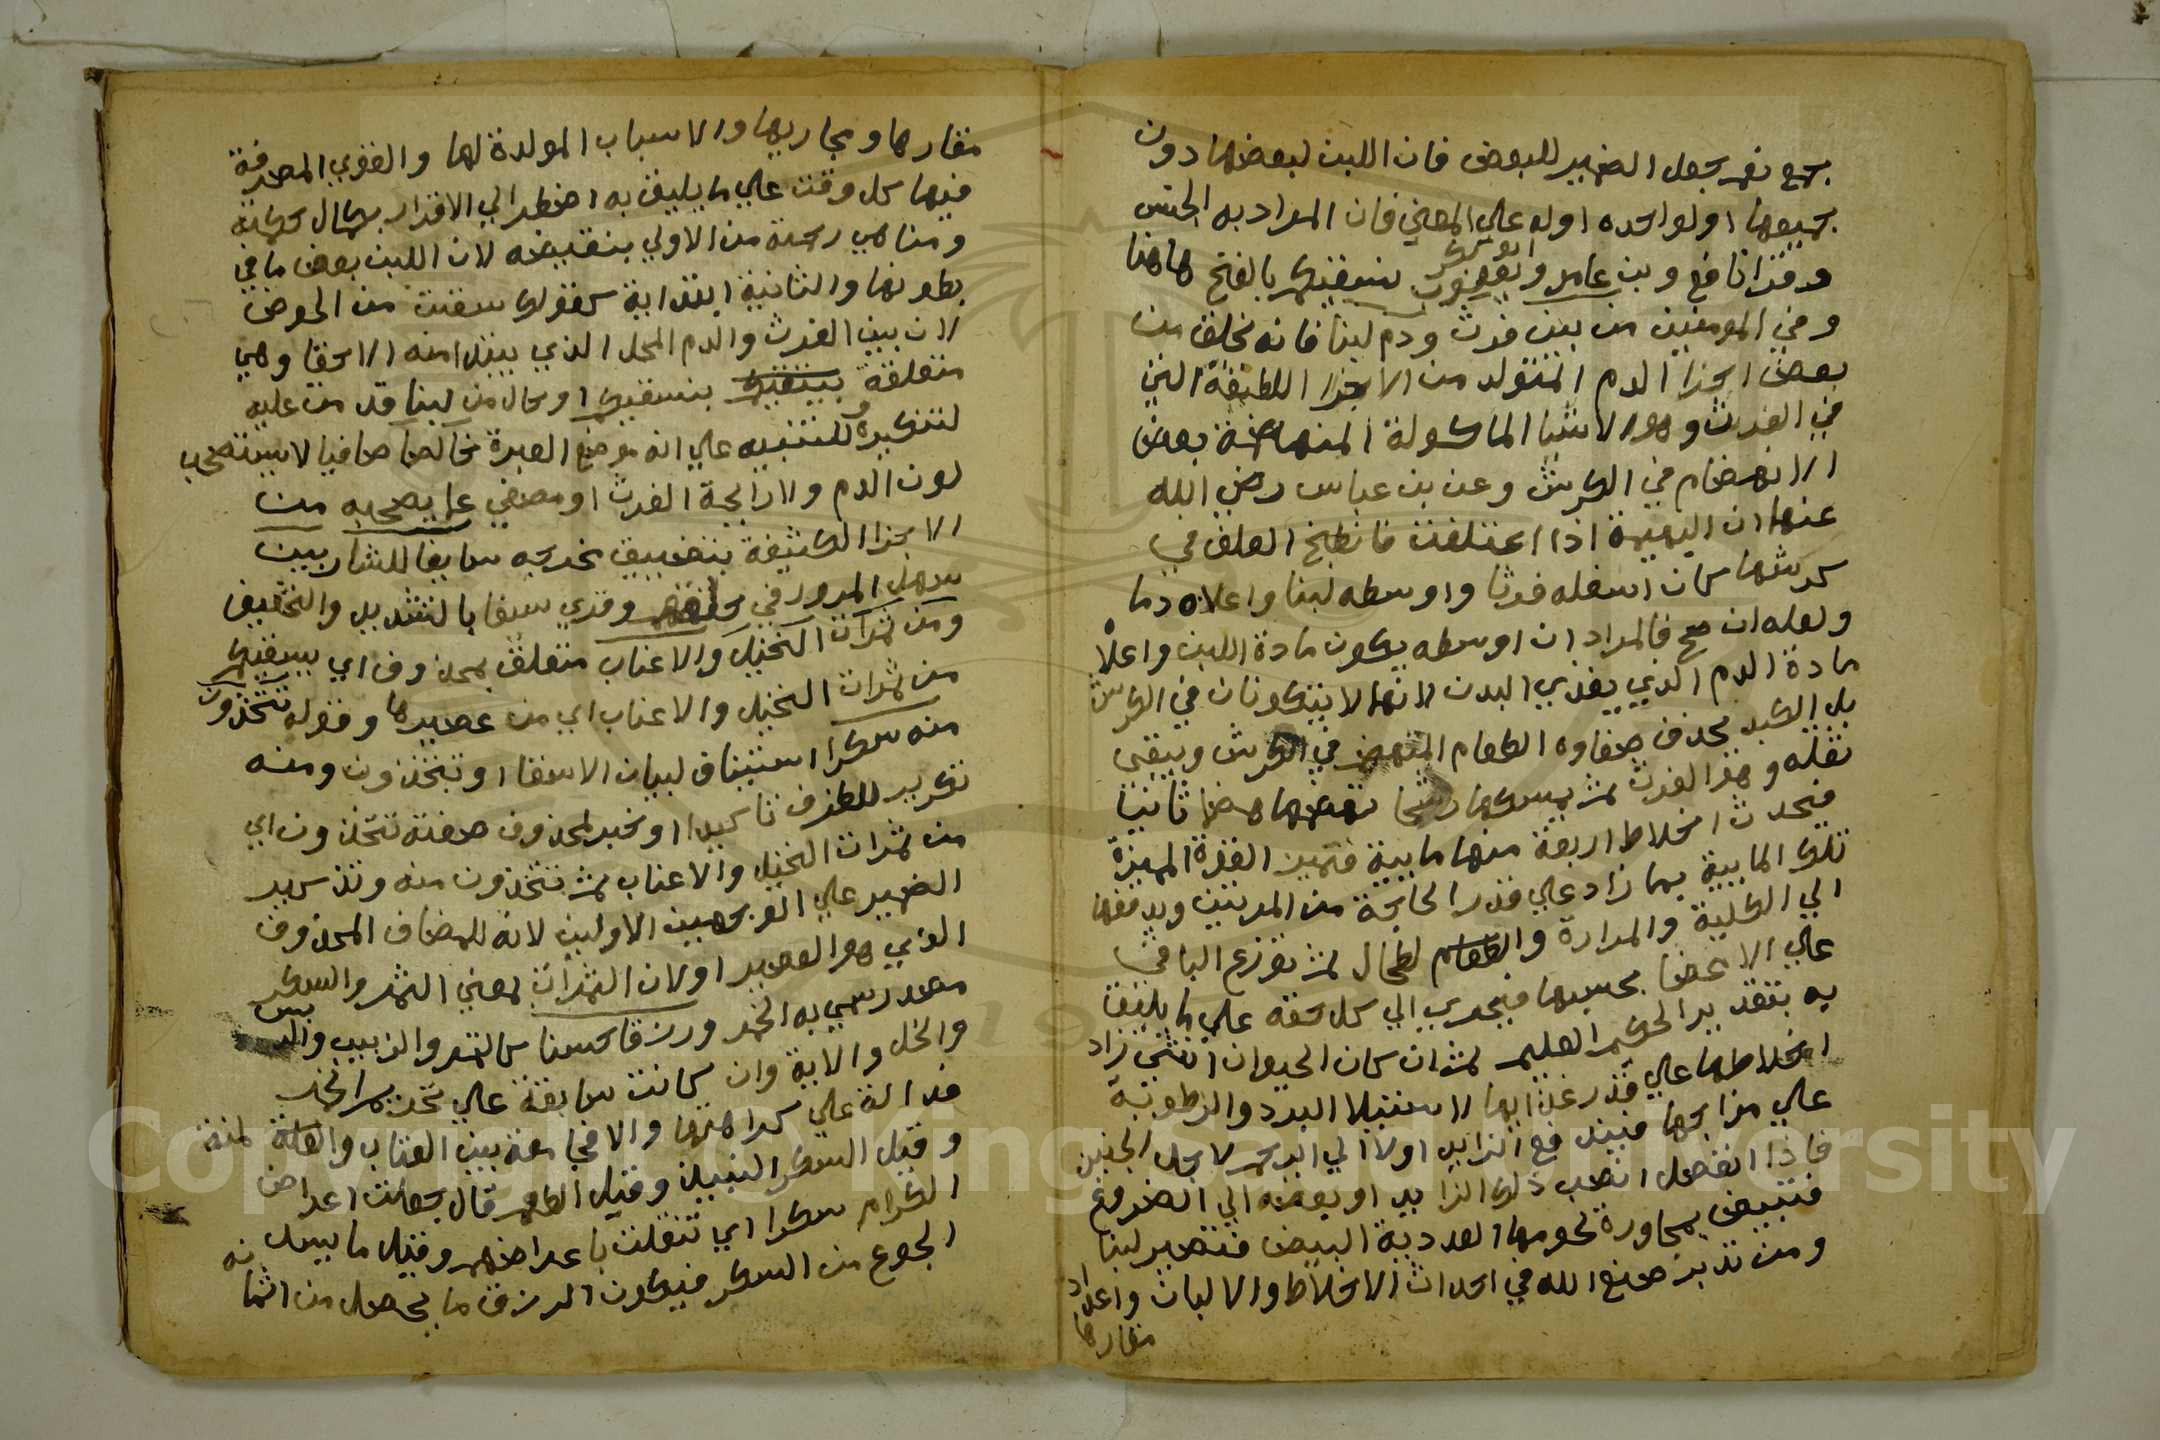 جمع نعم جعل الضمير للبعض فان اللبن لبعضها دون
جميعها او لواحده او له علي المعني فان المراد به الجنس
وقرا نافع وبن عامر وابو بكر ويعقوب نسقيكم بالفتح هاهنا
وفي المومنين من بين فرث ودم لبنا فانه يخلق من
بعض اجزا الدم المتولد من الاجزا اللطيفة التي
في الفرث وهو الاشيا الماكولة المنهضمة بعض
الانهضام في الكرش وعن بن عباس رضي الله
عنهما ان البهيمة اذا اعتلفت فانطبخ العلف في
كرشها كان اسفله فرثا واوسطه لبنا واعلاه دما
ولعله ان صح فالمراد ان اوسطه يكون مادة اللبن واعلاه
مادة الدم الذي يغذي البدن لانهما لا يتكونان في الكرش
بل الكبد يجذب صفاوه الطعام المنهضم في الكرش ويبقي
ثفله وهو الفرث ثم يمسكها ريثما يهضمها هضما ثانيا
فيحدث اخلاط اربعة منها مايية فتميز القوة المميزة
تلك المايية بما زاد علي قدر الحاجة من المرتين ويدفعها
الي الكلية والمرارة والطحال ثم توزع الباقي
علي الاعضا بحسبها فيجري الي كل حقه علي ما يليق
به بتقدير الحكيم العليم ثم ان كان الحيوان انثي زاد
اخلاطها علي قدر غذايها لاستيلا البرد والرطوبة
علي مزاجها فيندفع الزايد اولا الي الرحم لاجل الجنين
فاذا انفصل انصب ذلك الزايد او بعضه الي الضروع
فتبيض بمجاورة لحومها الغددية البيض فتصير لبنا
ومن تدبر صنع الله في احداث الاخلاط والالبان واعداد
مقارها
مقارها ومجاريها والاسباب المولدة لها والقوي المصرفة
فيها كل وقت علي ما يليق به اضطر الي الاقرار بكمال حكمته
وتناهي رحمته من الاولي تبعيضه لان اللبن بعض ما في
بطونها والثانية ابتدائية كقولك سقيت من الحوض
لان بين الفرث والدم المحل الذي يبتدا منه الاسقا وهي
متعلقة بنسقيكم او حال من لبنا قدمت عليه
لتنكيره وللتنبيه علي انه موضع العبرة خالصا صافيا لا يستصحب
لون الدم ولا رايحة الفرث او مصفي عما يصحبه من
الاجزا الكثيفة بتضييق مخرجه سايغا للشاربين
سهل المرور في حلقهم وقري سيغا بالتشديد والتخفيف
ومن ثمرات النخيل والاعناب متعلق بمحذوف اي نسقيكم
من ثمرات النخيل والاعناب اي من عصيرها وقوله تتخذون
منه سكرا استيناف لبيان الاسقا او تتخذون ومنه
تكرير للظرف تاكيدا او خبر لمحذوف صفته تتخذون اي
من ثمرات النخيل والاعناب ثمر تتخذون منه وتذكير
الضمير علي الوجهين الاولين لانه للمضاف المحذوف
الذي هو العصير او لان الثمرات بمعني الثمر والسكر
مصدر سمي به الخمر ورزقا حسنا كالتمر والزبيب والدبس
والخل والاية وان كانت سابقة علي تحريم الخمر
فدالة علي كراهتها والا فجامعة بين العتاب والمنة
وقيل السكر النبيذ وقيل الطعم قال جعلت اعراض
الكرام سكرا اي تنقلت باعراضهم وقيل ما يسد
الجوع من السكر فيكون الرزق ما يحصل من اثمانه
Copyright © King Saud University